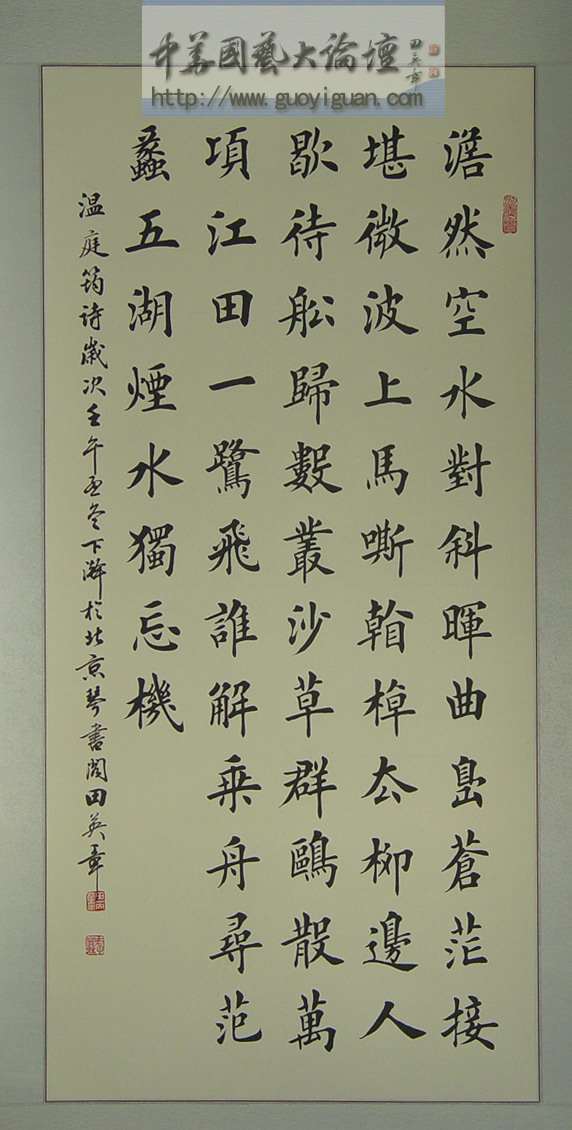 中华國藝大论壇
田英章
http://www.guoyiguan.com
澹然空水對斜暉曲島蒼茫接
堪微波上馬嘶看棹厺柳邊人
歇待舩歸數叢沙草群鷗散萬
項江田一鷺飛誰解乗舟尋范
蠡五湖煙水獨忘機
温庭筠诗歲次壬午孟冬下澣於北京琴書閣田英章